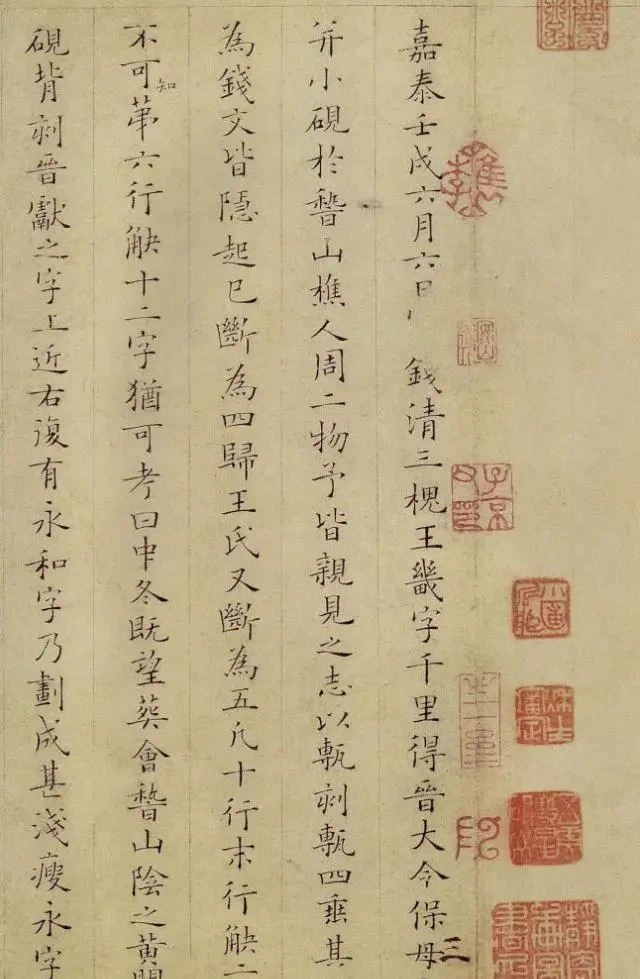 嘉泰壬戌六月六日 錢清三槐王畿字千里得晉大令保母
并小硯於稽山樵人周二物予皆親見之志以甎刻甎四垂其
為錢文皆隱起已斷為四歸王氏又斷為五凡十行末行缺二
不可知第六行缺十二字猶可考曰中冬既望葬會稽山陰之黃
硯背刻晉獻之字上近右復有永和字乃劃成甚淺瘦永字
子京父印